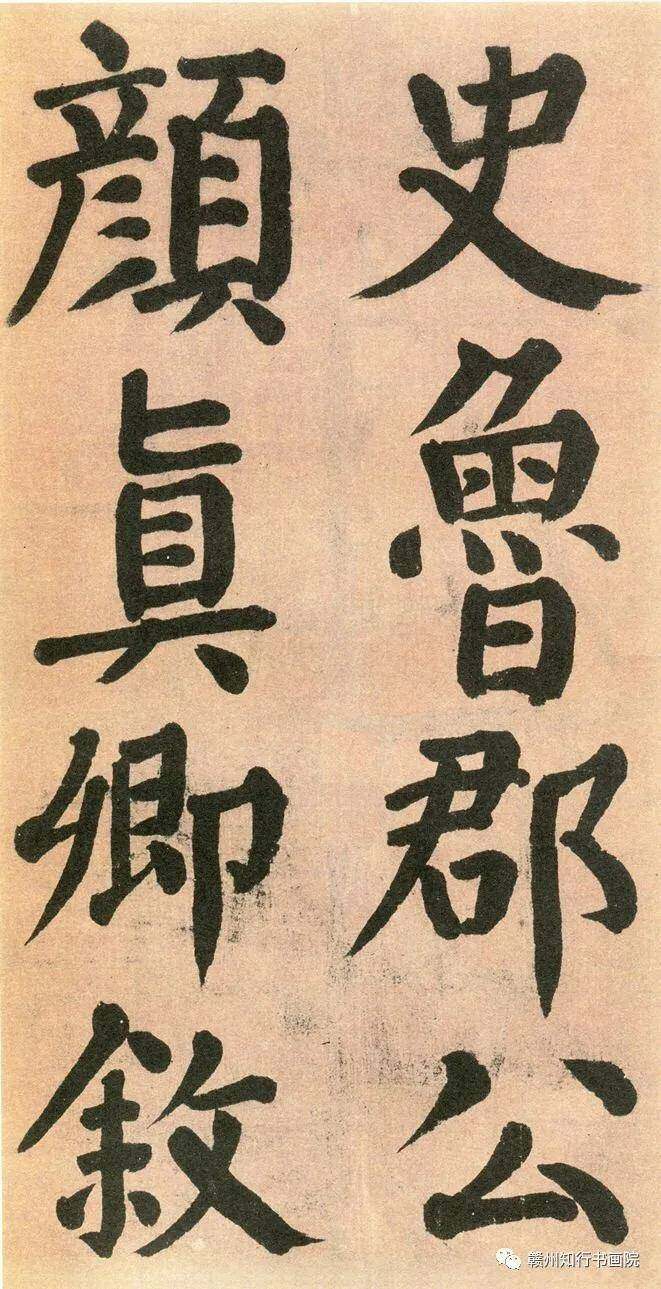 史魯郡公
顏眞卿敘
赣州知行书画院